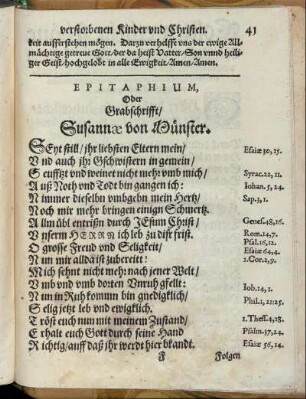 verstorbenen Kinder vnd Christen. 41
keit aufferstehen mögen. Darzu verhelffe vns der ewige All-
mächtige getreue Gott/ der da heist Vatter/ Son vnnd heili-
ger Geist/ hochgelobt in alle Ewigkeit/ Amen/ Amen.
EPITAPHIUM,
Oder
Grabschrifft/
Susannæ von Münster.
SEyt still/ jhr liebsten Eltern mein/ Esaiæ 30, 15.
Vnd auch jhr Gschwistern in gemein/
Seufftzt vnd weinet nicht mehr vmb mich/ Syrac. 22, 11.
Auß Noth vnd Todt bin gangen ich: Johan. 5, 24.
Nimmer dieselbn vmbgebn mein Hertz/ Sap. 3, 1.
Noch mir mehr bringen einign Schmertz.
All mühl entrißn durch JEsum Christ/ Genes. 48, 16.
Vnserm HERRN ich leb zu diser frist. Rom. 14, 7.
O grosse Freud vnd Seligkeit/ Psal. 16, 12. Esaiæ 64, 4.
Nun mir alldá ist zubereit: 1. Cor. 2, 9.
Mich sehnt nicht meh: nach jener Welt/
Vmb vnd vmb dorten Vnruh gsellt:
Nun in Ruh komm bin gnediglich/ Iob. 14, 1.
Selig jetz leb vnd ewiglich. Phil. 1, 22: 25.
Tröst euch nun mit meinem Zustand/ 1. Thess. 4, 18.
Erhalt euch Gott durch seine Hand Psalm. 37, 24.
Richtig/ auff daß jhr werdt hier bkandt. Esaiæ 56, 14.
F Folgen